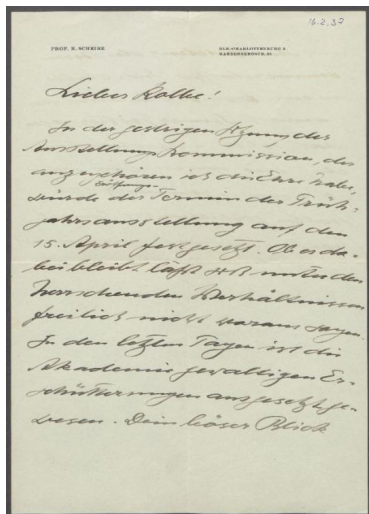 16.2.37
PROF. R. SCHEIBE
BLN.-CHARLOTTENBURG 9
Lieber Kolbe!
In der gestrigen Sitzung der
Ausstellungs Kommission, der
anzugehören ich die Ehre habe,
Eröffnungs-
wurde der Termin der Früh-
jahrsausstellung auf den
15. April festgesetzt. Ob es da-
bei bleibt läßt sich unter den
herrschenden Verhältnissen
freilich nicht voraus sagen.
In den letzten Tagen ist die
Akademie gewaltigen Er-
schütterungen ausgesetzt ge-
wesen. Dein böser Blick